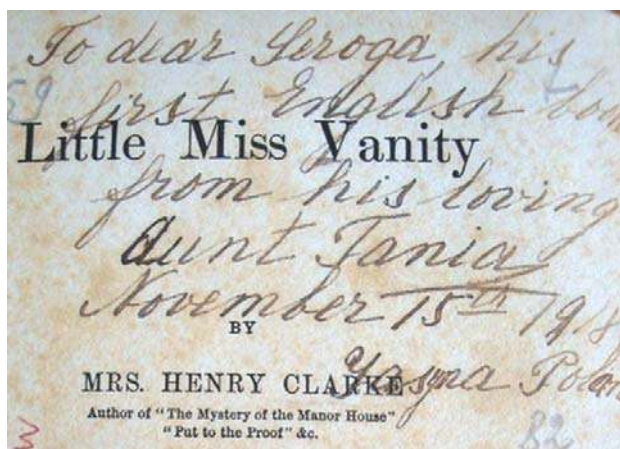 To dear Seroga, his
first English
Little Miss Vanity
from his loving
Aunt Tania
November 15th 1918
BY
MRS. HENRY CLARKE
Author of "The Mystery of the Manor House"
"Put to the Proof" &c.
82